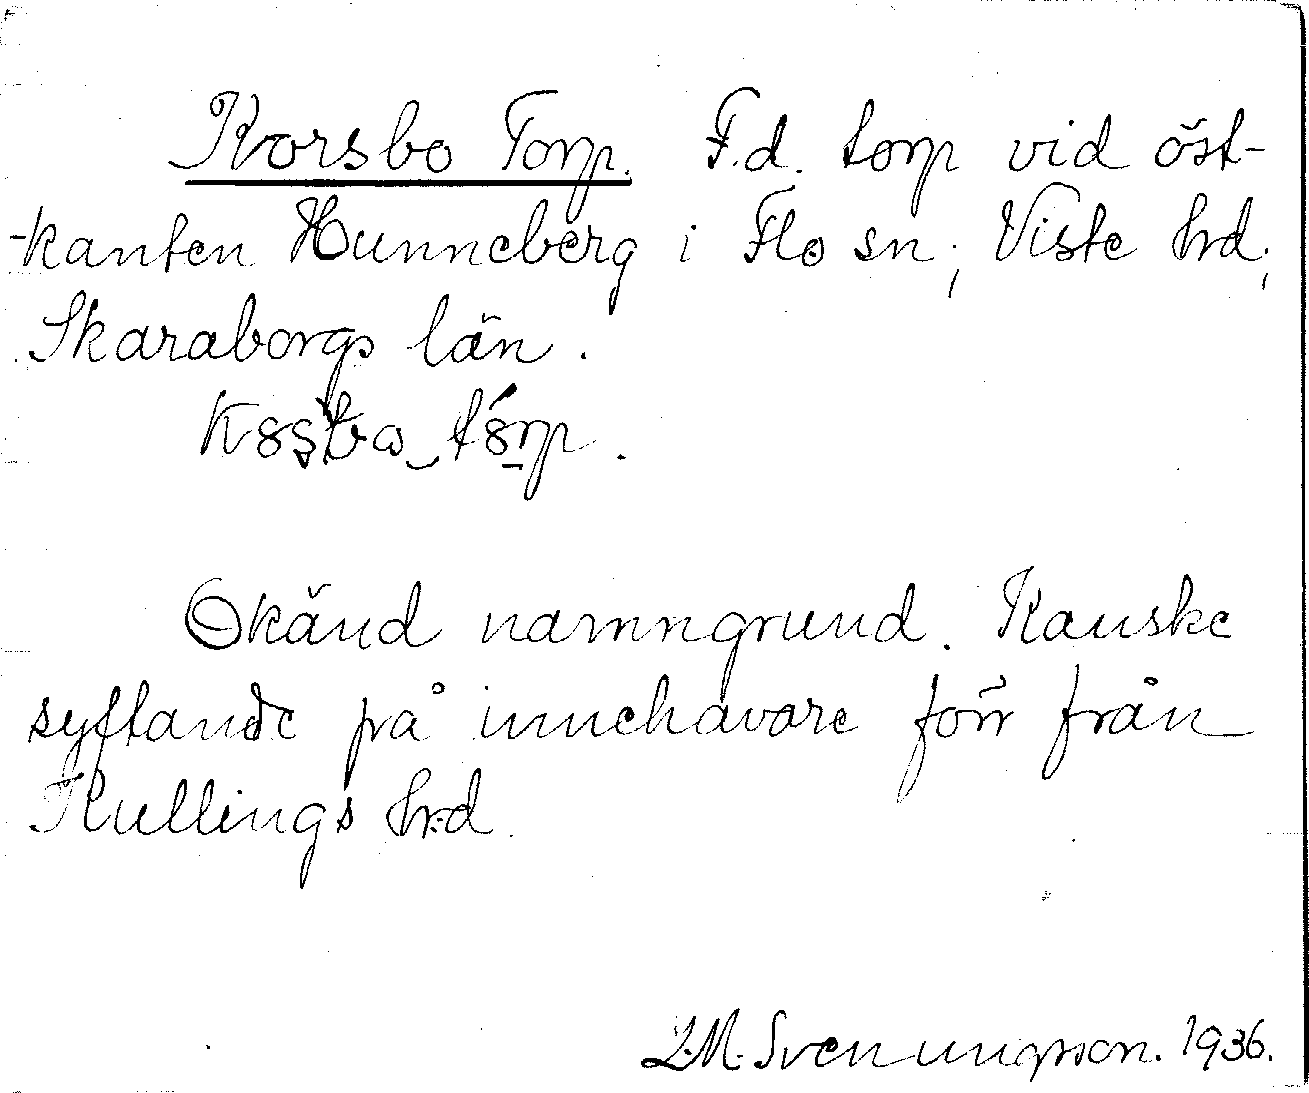 Korsbo Torp. F.d. torp vid öst-
-kanten Hunneberg i Flo sn, Viste hrd,
Skaraborgs län.
Okänd namngrund. Kanske
syftande på innehavare förr från
Kullings hrd.
L.M. Svenungsson. 1936.